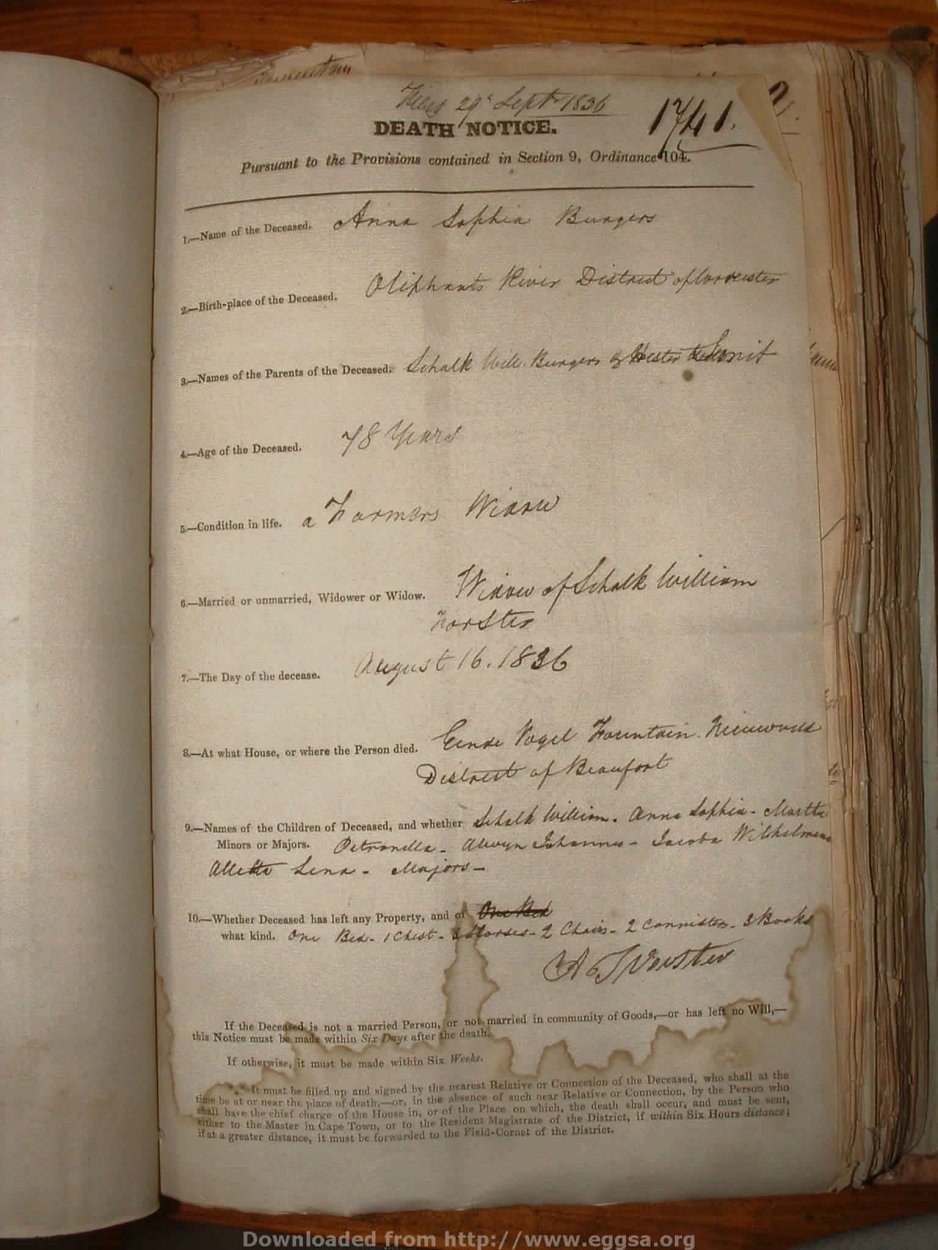 Filed 29th Sept 1836
1741.
DEATH NOTICE.
Pursuant to the Provisions contained in Section 9, Ordinance 104.
1.—Name of the Deceased. Anna Sophia Burgers
2.—Birth-place of the Deceased. Oliphants River District of Worcester
3.—Names of the Parents of the Deceased. Schalk Will. Burgers & Hester
4.—Age of the Deceased. 78 Years
5.—Condition in life. a Farmers Widow
6.—Married or unmarried, Widower or Widow. Widow of Schalk William
Forster
7.—The Day of the decease. August 16. 1836
8.—At what House, or where the Person died. Eende Vogel Fountain. Nieuwveld
District of Beaufort
9.—Names of the Children of Deceased, and whether Schalk William. Anna Sophia - Martha
Minors or Majors. Petronella - Alewyn Johannes - Jacoba Wilhelmina
Aletta Lena - Majors -
10.—Whether Deceased has left any Property, and of One Bed
what kind. One Bed - 1 Chest - Horses - 2 Chairs - 2 Cannisters - 3 Books
If the Deceased is not a married Person, or not married in community of Goods,—or has left no Will,—
this Notice must be made within Six Days after the death.
If otherwise, it must be made within Six Weeks.
It must be filled up and signed by the nearest Relative or Connection of the Deceased, who shall at the
time be at or near the place of death,—or, in the absence of such near Relative or Connection, by the Person who
shall have the chief charge of the House in, or of the Place on which, the death shall occur, and must be sent,
either to the Master in Cape Town, or to the Resident Magistrate of the District, if within Six Hours distance;
if at a greater distance, it must be forwarded to the Field-Cornet of the District.
Downloaded from http://www.eggsa.org